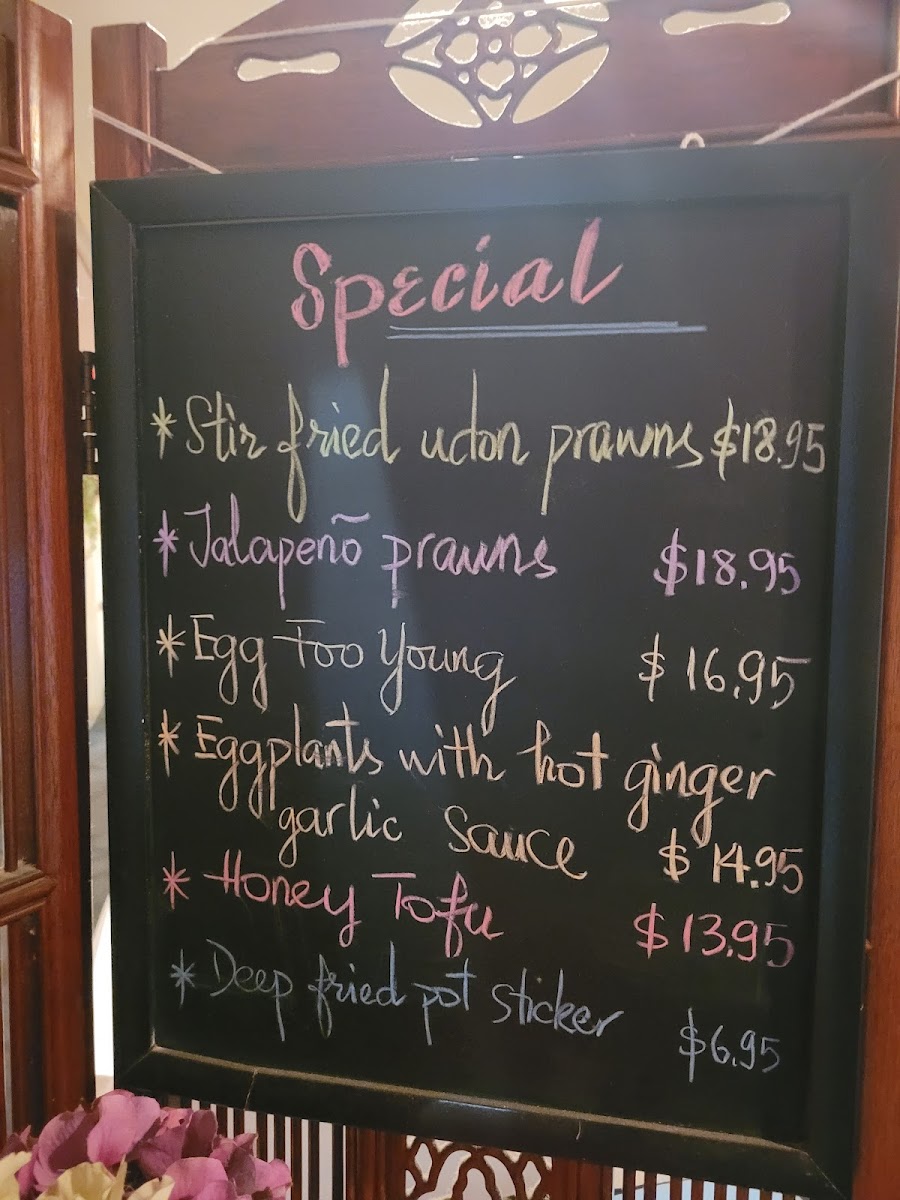 Special
* Stir fried udon prawns $18.95
* Jalapeño prawns $18.95
* Egg Foo Young $16.95
* Eggplants with hot ginger
garlic sauce $14.95
* Honey Tofu $13.95
* Deep fried pot sticker $6.95